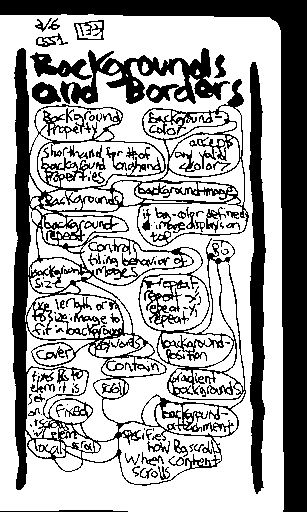 2/6
CSS1
133
Backgrounds
and Borders
Background
Property
background-
color
Shorthand for # of
background longhand
Properties
accepts
any valid
color
Backgrounds
background-image
background-
repeat
if bg-color defined
image displays on
top
Controls
tiling behavior of
images
BG
background-
size
no-repeat
repeat-x
repeat-y
repeat
use length or %
to size image to
fit in background
Keywords
background-
position
Cover
Contain
gradient
backgrounds
scroll
fixed
background-
attachment
local
scroll
specifies
how BG scrolls
when content
scrolls